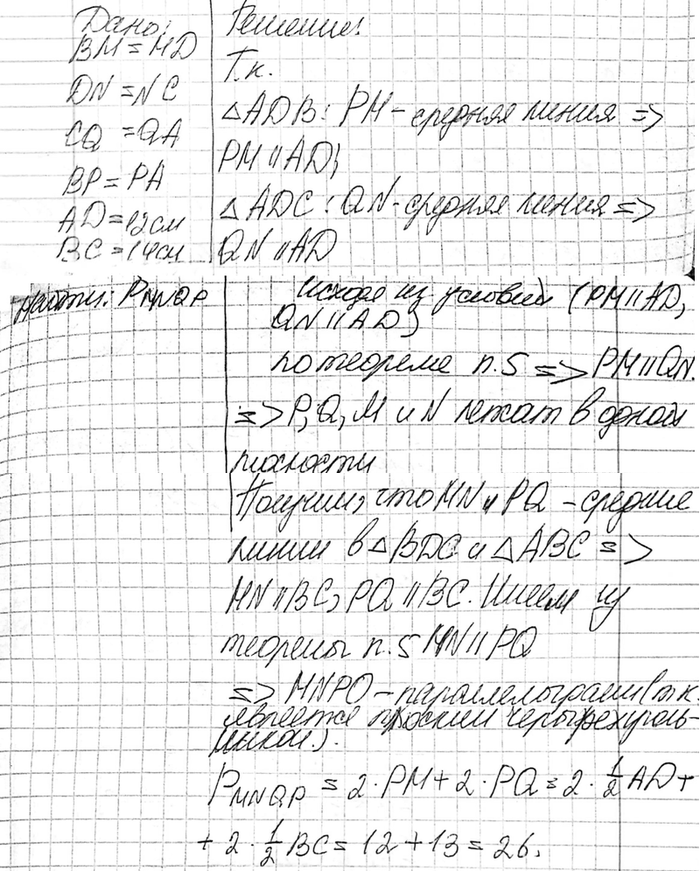 Дано:
BM = MD
DN = NC
CQ = QA
BP = PA
AD = 12 см
BC = 14 см
Найти: PMNQP
Решение:
Т.к.
△ADB: PM - средняя линия =>
PM || AD;
△ADC: QN - средняя линия =>
QN || AD
Исходя из условий (PM || AD,
QN || AD)
по теореме п.5 => PM || QN.
=> P, Q, M и N лежат в одной
плоскости
Получим, что MN и PQ - средние
линии в △BDC и △ABC =>
MN || BC, PQ || BC. Имеем из
теоремы п.5 MN || PQ
=> MNPQ - параллелограмм (т.к.
является плоским четырехуголь-
ником).
PMNQP = 2 · PM + 2 · PQ = 2 · 1/2 AD +
+ 2 · 1/2 BC = 12 + 13 = 26.